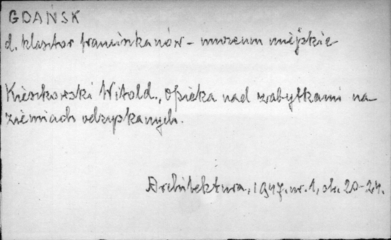 GDAŃSK
d. klasztor franciszkanów - muzeum miejskie
Kieszkowski Witold., Opieka nad zabytkami na
ziemiach odzyskanych.
Architektura, 1947. nr. 1, st. 20-24.